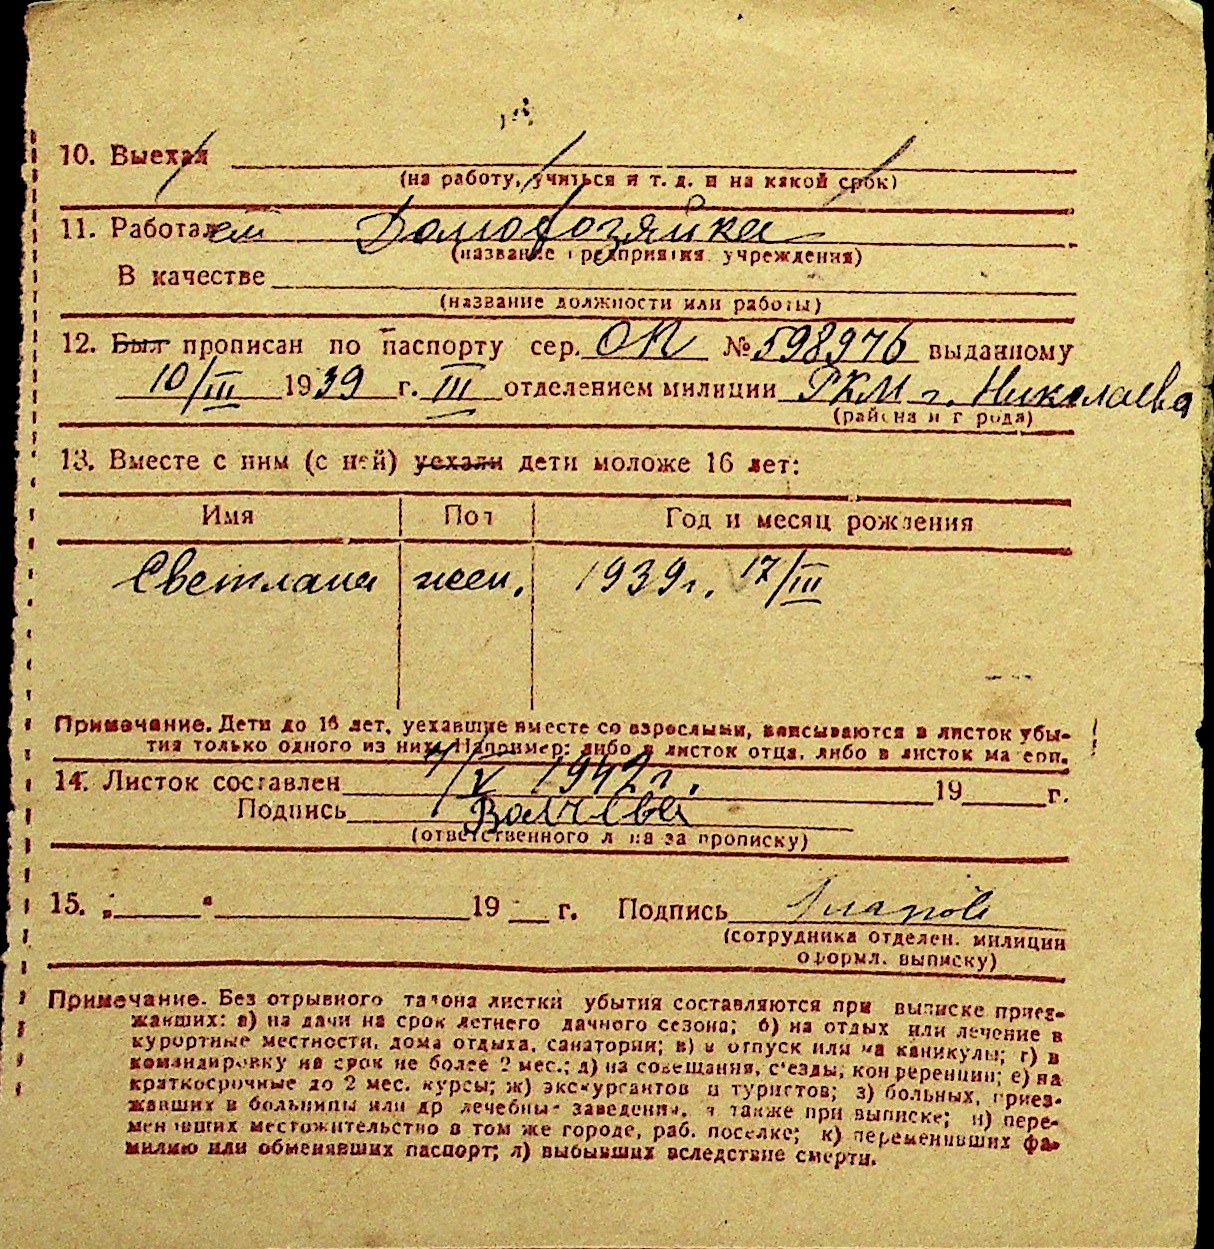 10. Выехал
(на работу, учиться и т. д. и на какой срок)
11. Работает Домохозяйка
(название предприятия, учреждения)
В качестве
(название должности или работы)
12. Был прописан по паспорту сер. ОП № 598976 выданному
10/III 1939 г. III отделением милиции РКМ г. Николаева
(района и города)
13. Вместе с ним (с ней) уехали дети моложе 16 лет:
Имя Пол Год и месяц рождения
Светлана жен. 1939 г. 17/III
Примечание. Дети до 16 лет, уехавшие вместе со взрослыми, вписываются в листок убы-
тия только одного из них. Например: либо в листок отца, либо в листок матери.
14. Листок составлен 7/V 1942 г. 19 г.
Подпись
(ответственного лица за прописку)
15. „ " 19 г. Подпись
(сотрудника отделен. милиции
оформл. выписку)
Примечание. Без отрывного талона листки убытия составляются при выписке приез-
жавших: а) на дачи на срок летнего дачного сезона; б) на отдых или лечение в
курортные местности, дома отдыха, санатории; в) в отпуск или на каникулы; г) в
командировку на срок не более 2 мес.; д) на совещания, с'езды, конференции; е) на
краткосрочные до 2 мес. курсы; ж) экскурсантов и туристов; з) больных, приез-
жавших в больницы или др лечебные заведения, а также при выписке; и) пере-
менивших местожительство в том же городе, раб. поселке; к) переменивших фа-
милию или обменявших паспорт; л) выбывших вследствие смерти.